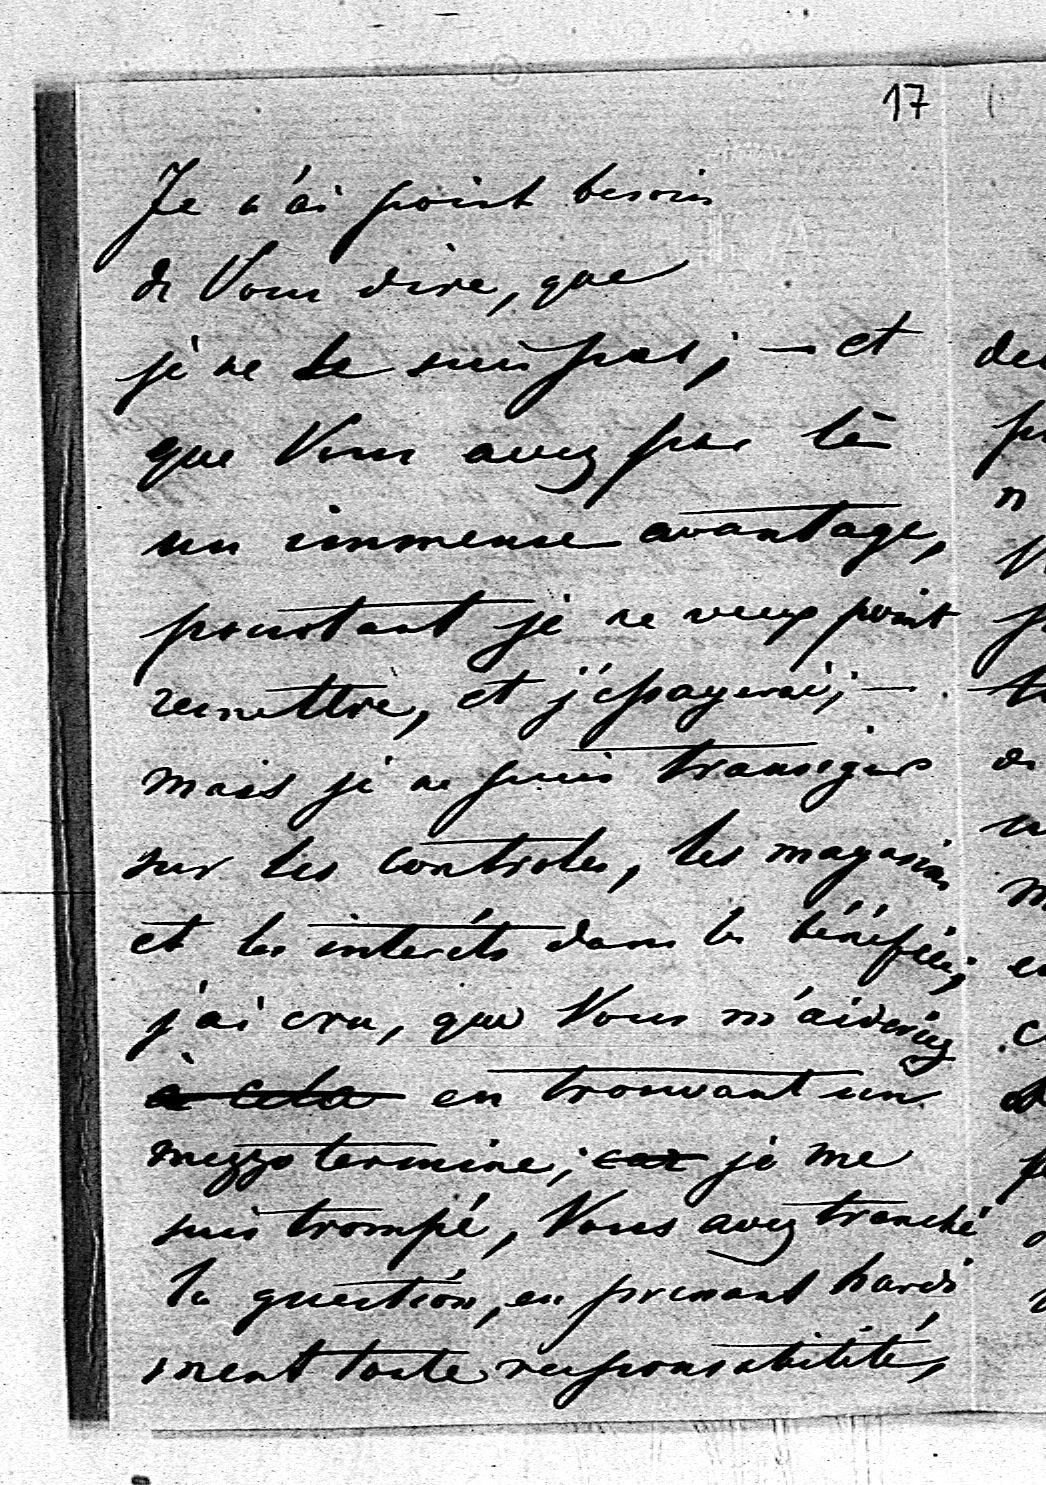 17
Je n'ai point besoin
de Vous dire, que
je ne le suis pas; — et
que Vous avez par là
un immense avantage,
pourtant je ne veux point
remettre, et j'éssayerai; —
mais je ne puis transiger
sur les controles, les magasins
et les interéts dans les bénéfices;
j'ai cru, que Vous m'aideriez
à cela en trouvant un
mezzo termine; car je me
suis trompé, Vous avez tranché
la question, en prenant hardi
ment toute responsabilité,